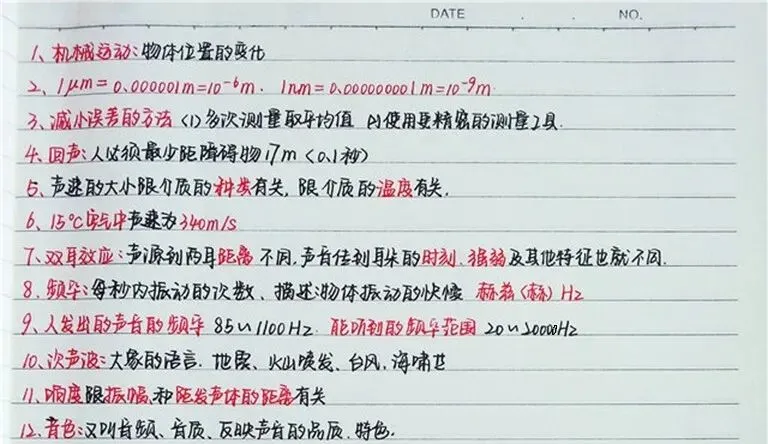 DATE . . NO.
1、机械运动:物体位置的变化
2、1μm=0.000001m=10⁻⁶m. 1nm=0.000000001m=10⁻⁹m
3、减小误差的方法 (1)多次测量取平均值 (2)使用更精密的测量工具.
4、回声:人必须最少距障碍物17m (0.1秒)
5、声速的大小限介质的种类有关,限介质的温度有关.
6、15℃空气中声速为340m/s
7、双耳效应:声源到两耳距离不同,声音传到耳朵的时刻、强弱及其他特征也就不同.
8、频率:每秒内振动的次数、描述:物体振动的快慢 赫兹(赫) Hz
9、人发出的声音的频率 85~1100Hz. 能听到的频率范围 20~20000Hz
10、次声波:大象的语言.地震、火山喷发、台风.海啸
11、响度跟振幅和距发声体的距离有关
12、音色:又叫音频、音质、反映声音的品质.特色.